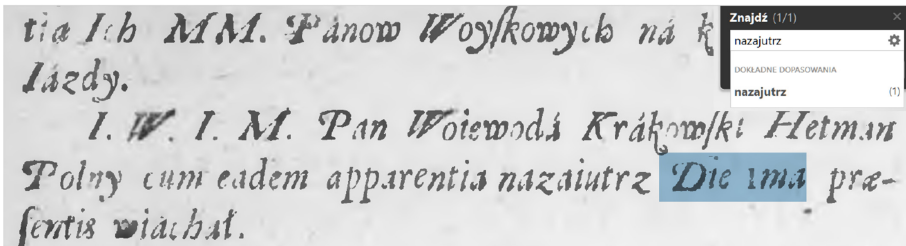 tia Ich MM. Pánow Woyſkowych ná k
Iázdy.
I. W. I. M. Pan Woiewodá Krákowſki Hetman
Polny cum eadem apparentia nazaiutrz Die 1ma præ-
ſentis wiáchał.
Znajdź (1/1)
nazajutrz
DOKŁADNE DOPASOWANIA
nazajutrz (1)